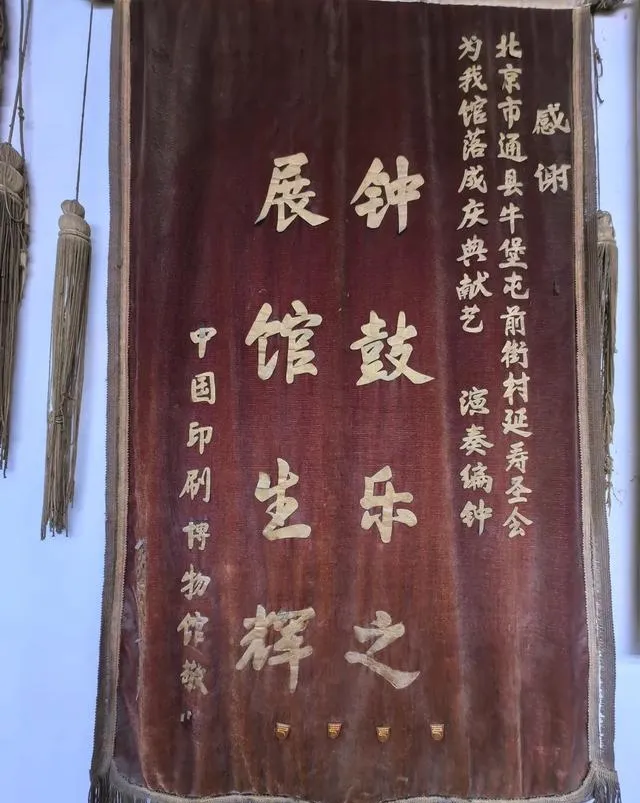 感谢
北京市通县牛堡屯前街村延寿圣会
为我馆落成庆典献艺 演奏编钟
钟鼓乐之
展馆生辉
中国印刷博物馆敬